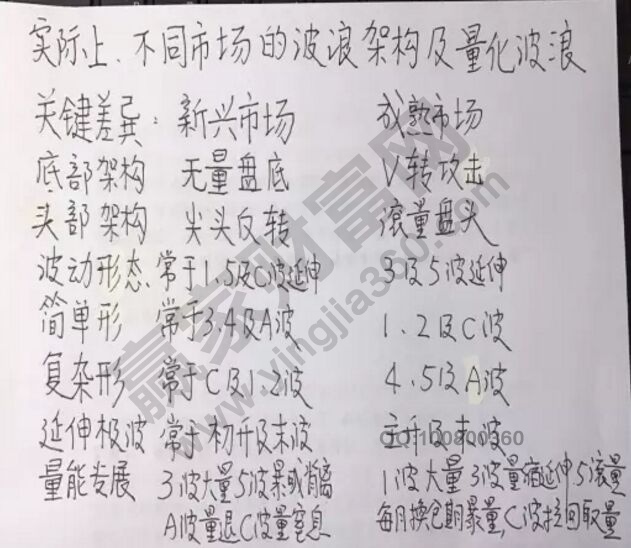 实际上、不同市场的波浪架构及量化波浪
关键差异：新兴市场 成熟市场
底部架构 无量盘底 V转攻击
头部架构 尖头反转 滚量盘头
波动形态 常于1.5及C波延伸 3及5波延伸
简单形 常于3.4及A波 1.2及C波
复杂形 常于C及1.2波 4.5及A波
延伸极波 常于初升及末波 主升及末波
量能发展 3波大量5波暴或背离 1波大量3波量缩延伸5滚量
A波量退C波量窒息 每月换仓期暴量,C波拉回取量
赢家财富网
www.yingjia360.com
QQ:100800360